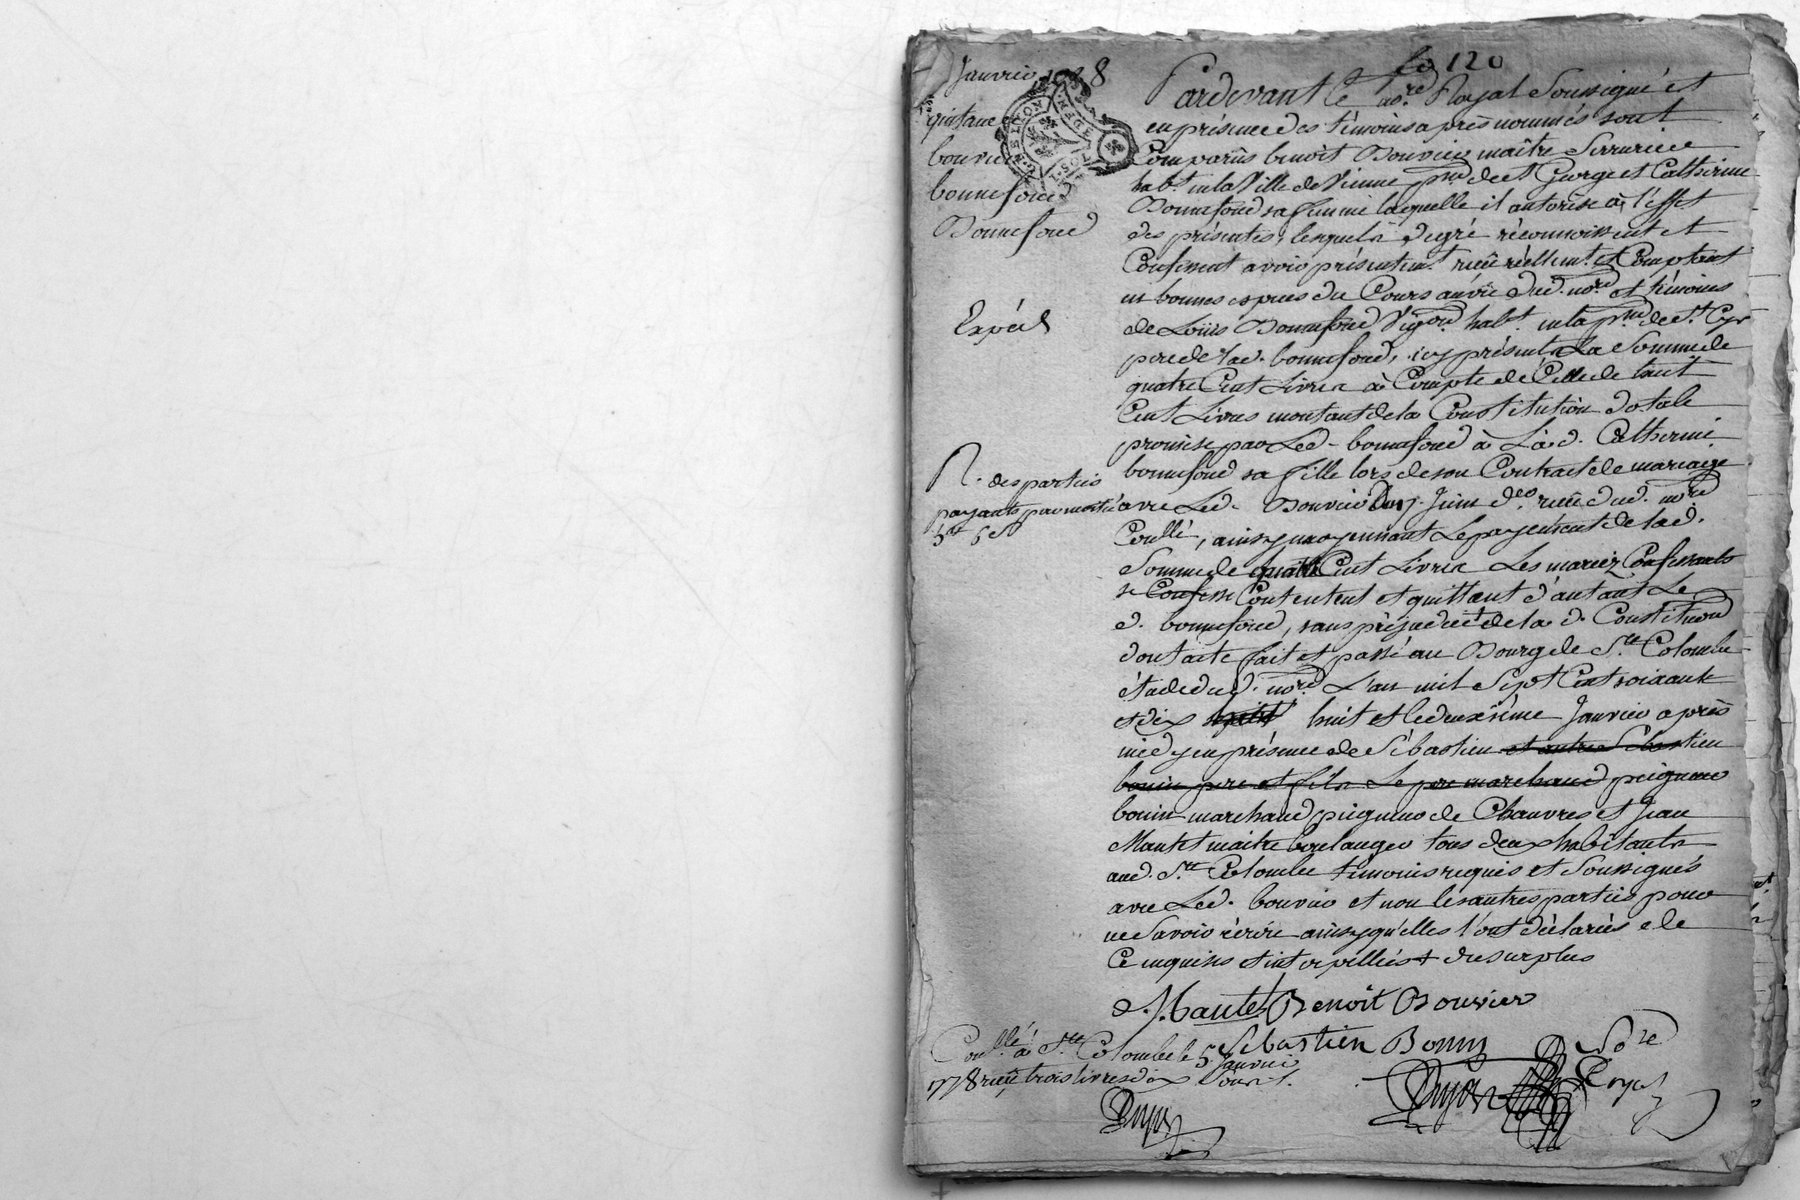 fo 120
2 Janvier 1778
quittance
bouvier
bonnefond
Bonnefond
Expéd
R. des parties
payants par moitié
3lt 5s
Pardevant le no.re Royal Soussigné et
en présence des témoins après nommés sont
Comparus benoit Bouvier maître Serrurier
hab.t en la Ville de Vienne p.sse de St George et Catherine
Bonnefond sa femme laquelle il autorise à l'effet
des présentes, lesquels de gré réconnoissent et
Confessent avoir présentem.t reçu réellem.t et Comptant
en bonnes espèces du Cours au vû dud. no.re et témoins
de Louis Bonnefond Vigon hab.t en la p.sse de St Cyr
père de lad. bonnefond, icy présent La Somme de
quatre Cent Livres à Compte de Celle de huit
Cent Livres montant de la Constitution dotale
promise par Led. bonnefond à Lad. Catherine
bonnefond sa fille lors de son Contrat de mariage
avec Led. Bouvier du Juin d.er reçu dud. no.re
Con.llé, ainsy moyennant Le payement de lad.
Somme de quatre Cent Livres Les mariez Confessants
se Confesse Contentent et quittent d'autant Le
d. bonnefond, sans préjudice de la d. Constitution
dont acte fait et passé au Bourg de S.te Colombe
étude dud. no.re L'an mil Sept Cent soixante
et dix huit et le deuxième Janvier après
midy en présence de Sébastien et autre Sébastien
bonin père et fils Le père marchand peigneur
bonin marchand peigneur de Chanvres et Jean
Mantet maitre boulanger tous deux habitants
aud. S.te Colombe témoins requis et Soussignés
avec Led. bouvier et non les autres parties pour
ne Savoir écrire ainsy qu'elles l'ont déclarées de
Ce enquises et interpellées du surplus
J. Mantet Benoit Bouvier
Sébastien Bonin
No.re
Royal
Con.llé à S.te Colombe le 5 Janvier
1778 reçu trois livres dix Sous